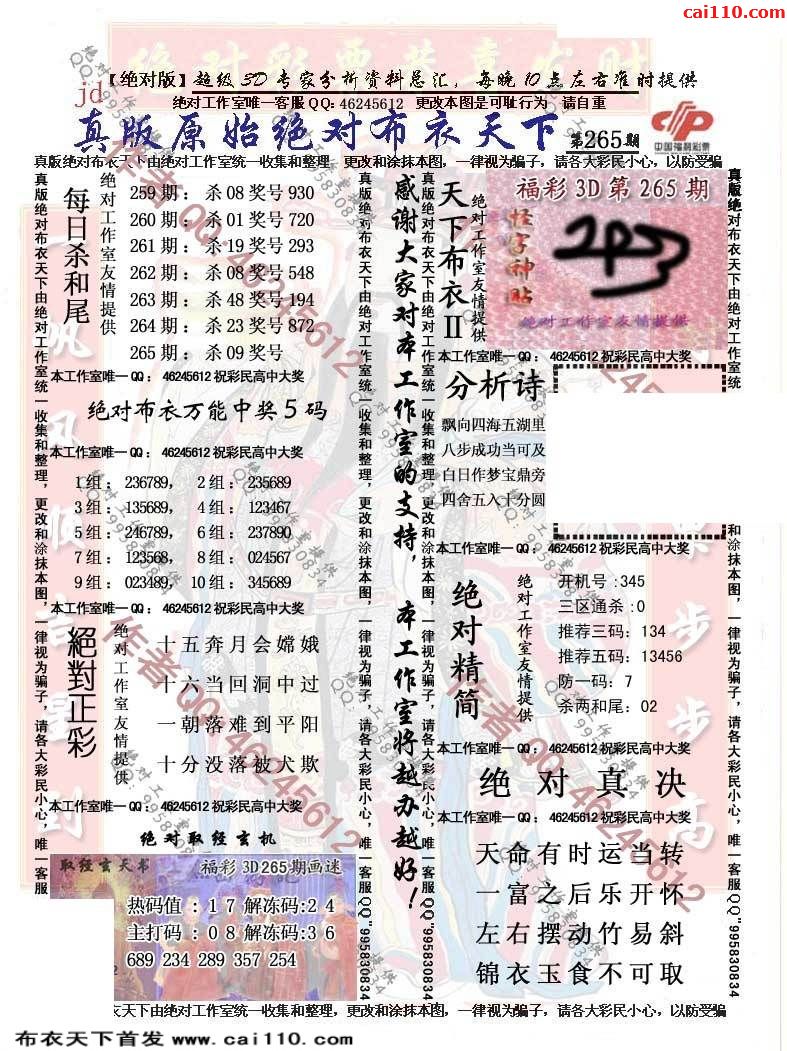 cai110.com
绝对彩票恭喜发财
【绝对版】超级3D专家分析资料总汇，每晚10点左右准时提供
jd
绝对工作室唯一客服QQ: 46245612 更改本图是可耻行为 请自重
真版原始绝对布衣天下 第265期
中国福利彩票
真版绝对布衣天下由绝对工作室统一收集和整理，更改和涂抹本图，一律视为骗子，请各大彩民小心，以防受骗
真版绝对布衣天下由绝对工作室统一收集和整理，更改和涂抹本图，一律视为骗子，请各大彩民小心，唯一客服
每日杀和尾
绝对工作室友情提供
259期：杀08奖号930
260期：杀01奖号720
261期：杀19奖号293
262期：杀08奖号548
263期：杀48奖号194
264期：杀23奖号872
265期：杀09奖号
本工作室唯一QQ：46245612祝彩民高中大奖
绝对布衣万能中奖5码
本工作室唯一QQ：46245612祝彩民高中大奖
1组：236789，2组：235689
3组：135689，4组：123467
5组：246789，6组：237890
7组：123568，8组：024567
9组：023489，10组：345689
本工作室唯一QQ：46245612祝彩民高中大奖
絕對正彩
绝对工作室友情提供
十五奔月会嫦娥
十六当回洞中过
一朝落难到平阳
十分没落被犬欺
本工作室唯一QQ：46245612祝彩民高中大奖
绝对取经玄机
取经玄天书
福彩3D265期画迷
热码值：17解冻码:24
主打码：08解冻码:36
689 234 289 357 254
真版绝对布衣天下由绝对工作室统一收集和整理，更改和涂抹本图，一律视为骗子，请各大彩民小心，唯一客服QQ"995830834
感谢大家对本工作室的支持，本工作室将越办越好！
真版绝对布衣天下由绝对工作室统一收集和整理，更改和涂抹本图，一律视为骗子，请各大彩民小心，唯一客服QQ"995830834
天下布衣II
绝对工作室友情提供
福彩3D第265期
怪字神贴
绝对工作室友情提供
本工作室唯一QQ：46245612祝彩民高中大奖
分析诗
飘向四海五湖里
八步成功当可及
白日作梦宝鼎旁
四舍五入十分圆
本工作室唯一QQ：46245612祝彩民高中大奖
绝对精简
绝对工作室友情提供
开机号:345
三区通杀:0
推荐三码：134
推荐五码：13456
防一码：7
杀两和尾：02
本工作室唯一QQ：46245612祝彩民高中大奖
绝对真决
本工作室唯一QQ：46245612祝彩民高中大奖
天命有时运当转
一富之后乐开怀
左右摆动竹易斜
锦衣玉食不可取
真版绝对布衣天下由绝对工作室统
和涂抹本图，一律视为骗子，请各大彩民小心，唯一客服QQ"995830834
衣天下由绝对工作室统一收集和整理，更改和涂抹本图，一律视为骗子，请各大彩民小心，以防受骗
布衣天下首发 www.cai110.com
作者QQ:46245612
绝对工作室提供
QQ:995830834